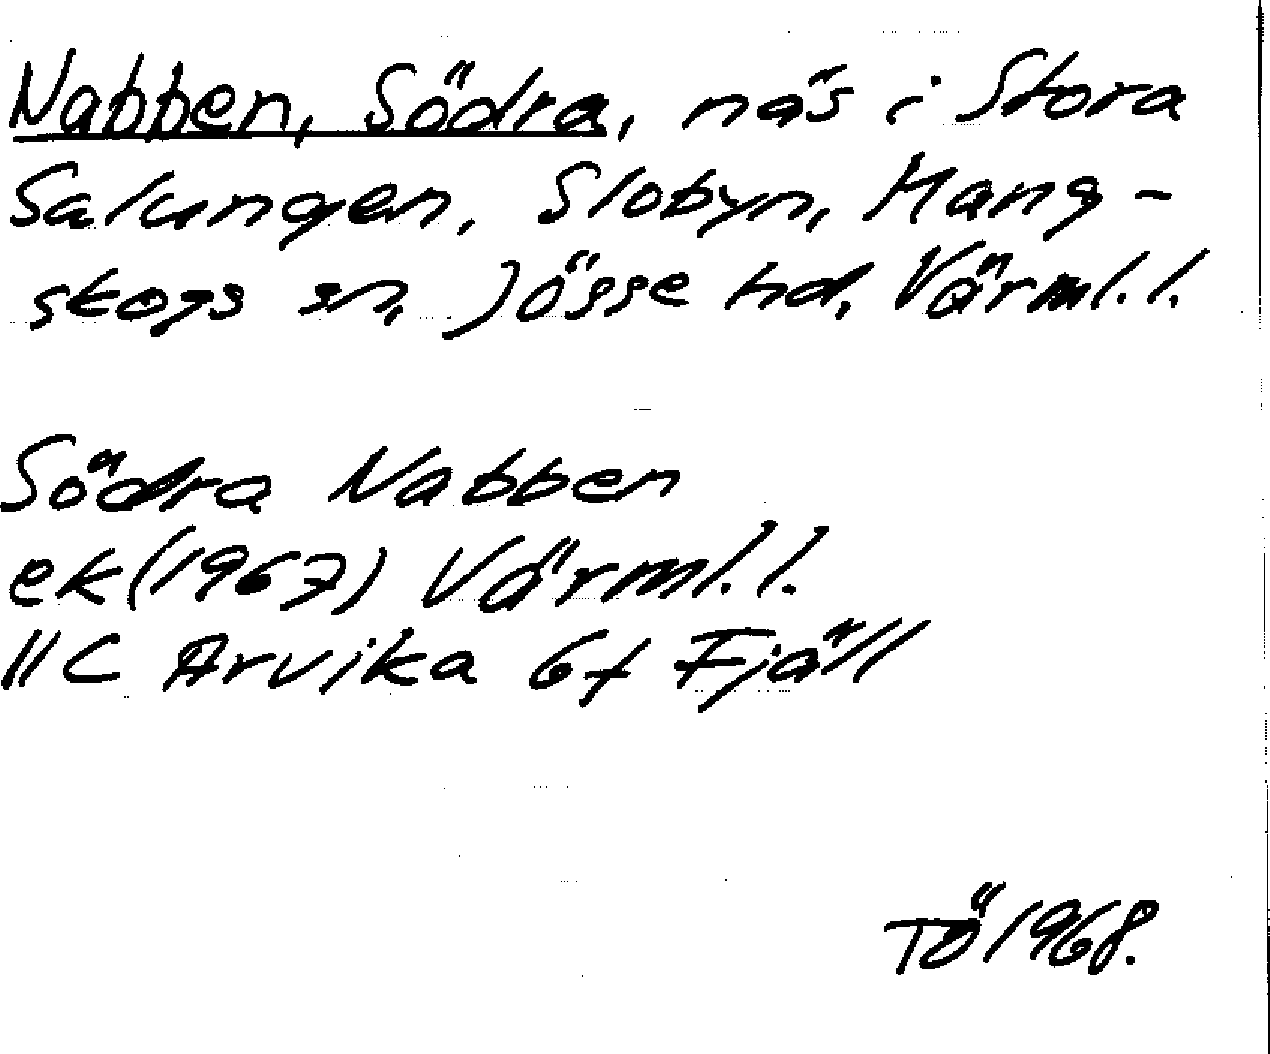 Nabben, Södra, näs i Stora
Salungen, Slobyn, Mang-
skogs sn, Jösse hd, Värml. l.
Södra Nabben
ek (1967) Värml. l.
11C Arvika 6f Fjäll
TÖ 1968.